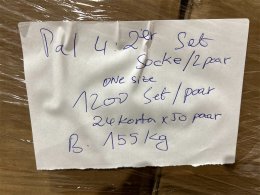 Pal 4: 2er Set
Socke/2paar
ONE SIZE
1200 Set/paar
24 karton x 50 paar
B. 155kg